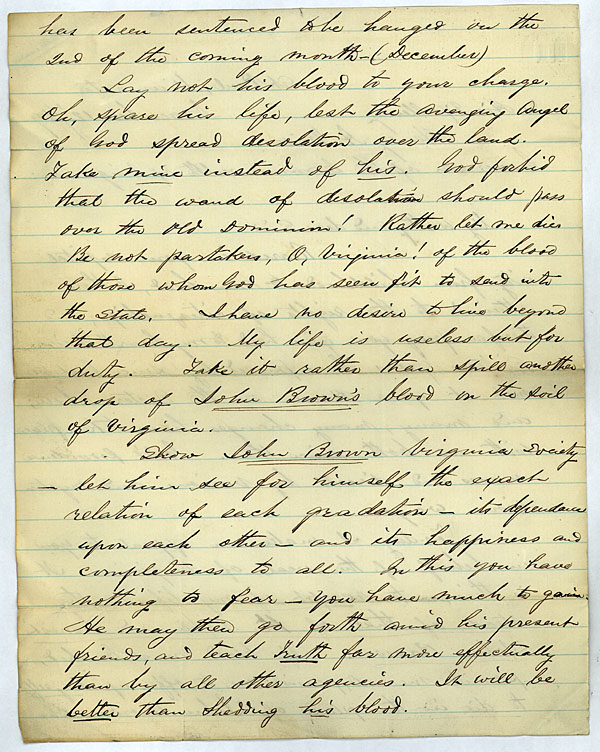 has been sentenced to be hanged on the
2nd of the coming month – (December)
Lay not his blood to your charge.
Oh, spare his life, lest the avenging Angel
of God spread desolation over the land.
Take mine instead of his. God forbid
that the wand of desolation should pass
over the Old Dominion! Rather let me die.
Be not partakers, O, Virginia! of the blood
of those whom God has seen fit to send into
the State. I have no desire to live beyond
that day. My life is useless but for
duty. Take it rather than spill another
drop of John Brown's blood on the soil
of Virginia.
Show John Brown Virginia Society
– let him see for himself the exact
relation of each gradation – its dependence
upon each other – and its happiness and
completeness to all. In this you have
nothing to fear – you have much to gain.
He may then go forth amid his present
friends, and teach Truth far more effectually
than by all other agencies. It will be
better than shedding his blood.